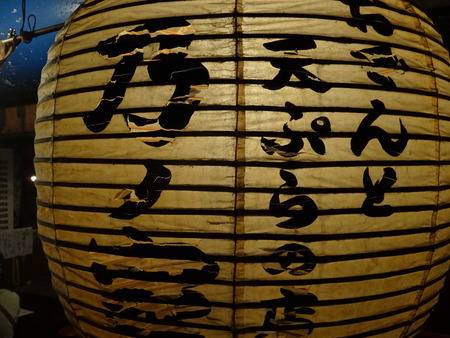 おでんと
天ぷらの店
乃ノ